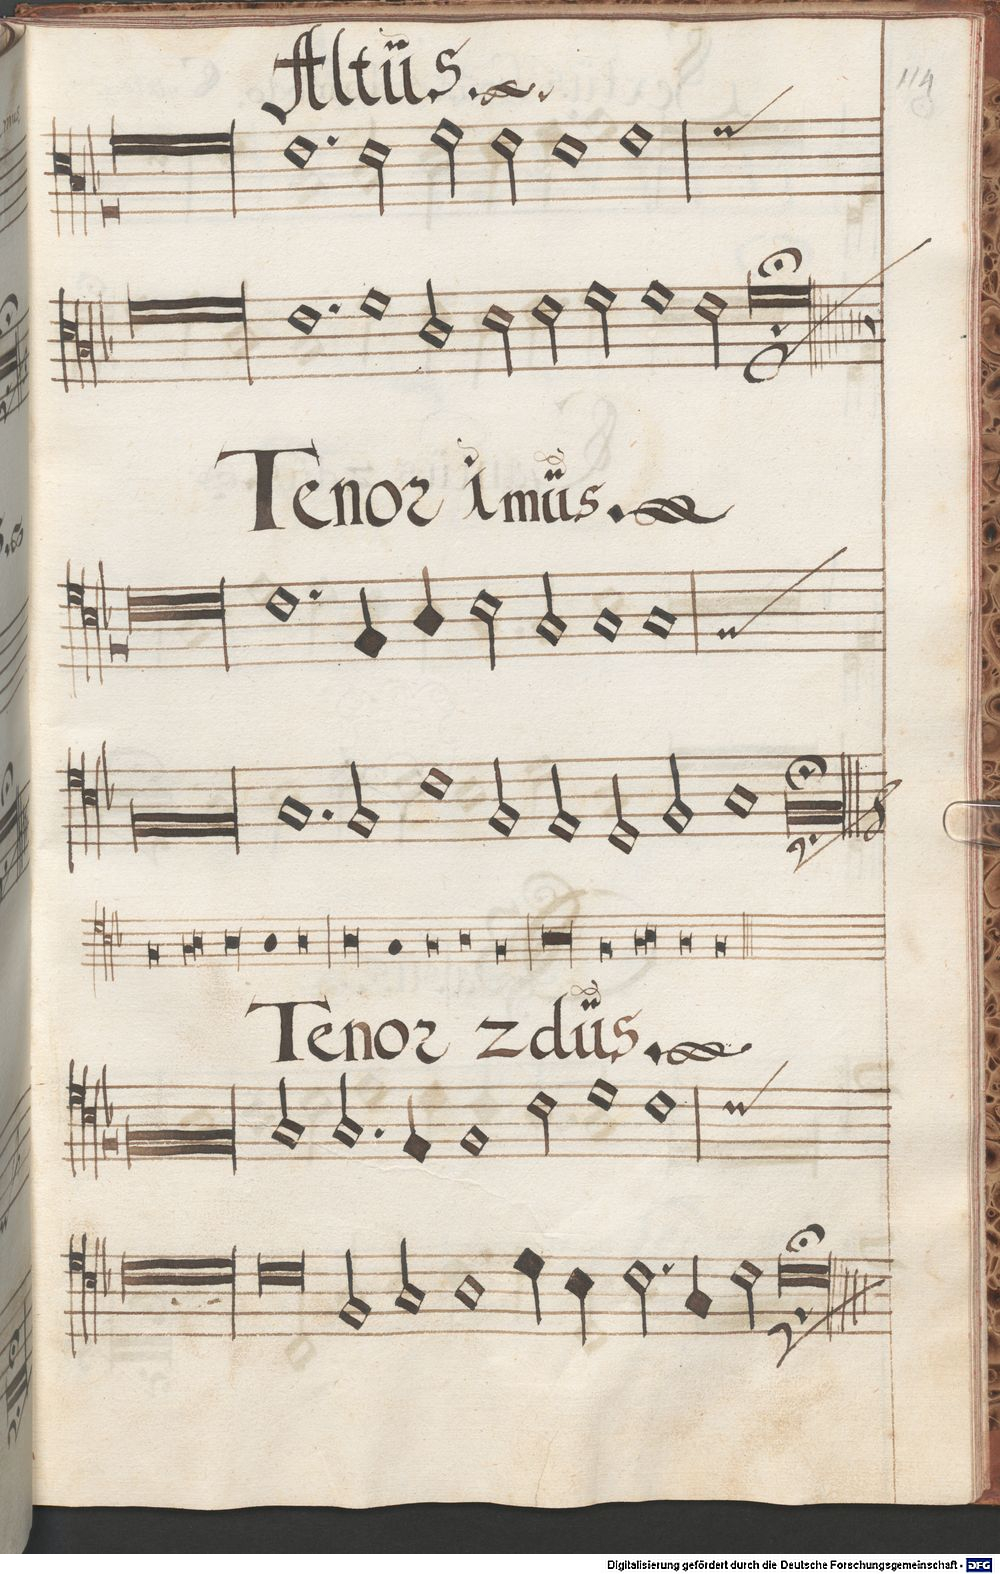 Altüs.
114
Tenor 1müs.
Tenor 2düs.
Digitalisierung gefördert durch die Deutsche Forschungsgemeinschaft - DFG